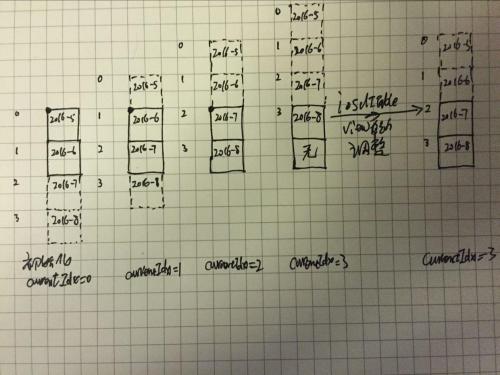 0 2016-5
1 2016-6
2 2016-7
3 2016-8
初始化
currentIdx=0
0 2016-5
1 2016-6
2 2016-7
3 2016-8
currentIdx=1
0 2016-5
1 2016-6
2 2016-7
3 2016-8
currentIdx=2
0 2016-5
1 2016-6
2 2016-7
3 2016-8
无
currentIdx=3
ios的table
view自动
调整
0 2016-5
1 2016-6
2 2016-7
3 2016-8
currentIdx=3